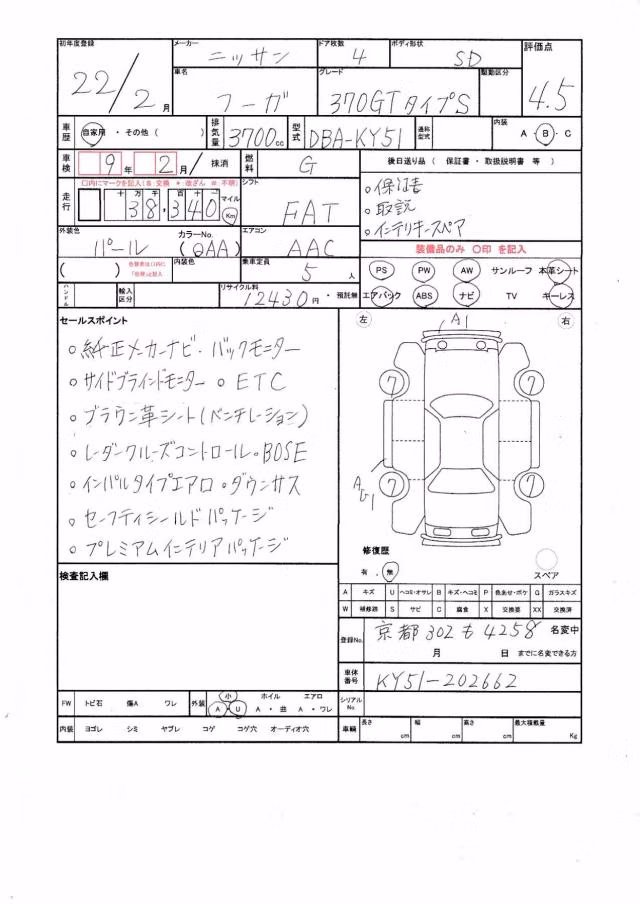 初年度登録 メーカー ニッサン ドア枚数 4 ボディ形状 SD 評価点
22/2月 車名 フーガ グレード 370GTタイプS 駆動区分 4.5
車歴 自家用・その他( ) 排気量 3700cc 型式 DBA-KY51 通称型式 内装 A・B・C
車検 9年2月 抹消 燃料 G 後日送り品 ( 保証書・取扱説明書 等 )
□内にマークを記入($:交換 *:改ざん #:不明) シフト 。保証書
走行 十万千 38,340 マイル Km FAT 。取説
外装色 カラーNo. エアコン 。インテリキースペア
パール (QAA) AAC 装備品のみ ○印 を記入
( ) 内装色 乗車定員 5人 PS PW AW サンルーフ 本革シート
ハンドル 輸入区分 リサイクル料 12430円・預託無 エアバック ABS ナビ TV キーレス
セールスポイント 左 右
。純正メーカーナビ・バックモニター A1
。サイドブラインドモニター 。ETC 7 7
。ブラウン革シート(ベンチレーション)
。レーダークルーズコントロール。BOSE
。インパルタイプエアロ 。ダウンサス AU1 7 7
。セーフティシールドパッケージ
。プレミアムインテリアパッケージ 修復歴
有・無 スペア
検査記入欄 A キズ U ヘコミ・オサレ B キズ・ヘコミ P 色あせ・ボケ G ガラスキズ
W 補修跡 S サビ C 腐食 X 交換要 XX 交換済
登録No. 京都 302 も 4258 名変中
月 日 までに名変できる方
車体番号 KY51-202662
FW トビ石 傷A ワレ 外装 小 A・U ホイル A・曲 エアロ A・ワレ シリアルNo.
内装 ヨゴレ シミ ヤブレ コゲ コゲ穴 オーディオ穴 車輌 長さ cm 幅 cm 高さ cm 最大積載量 Kg